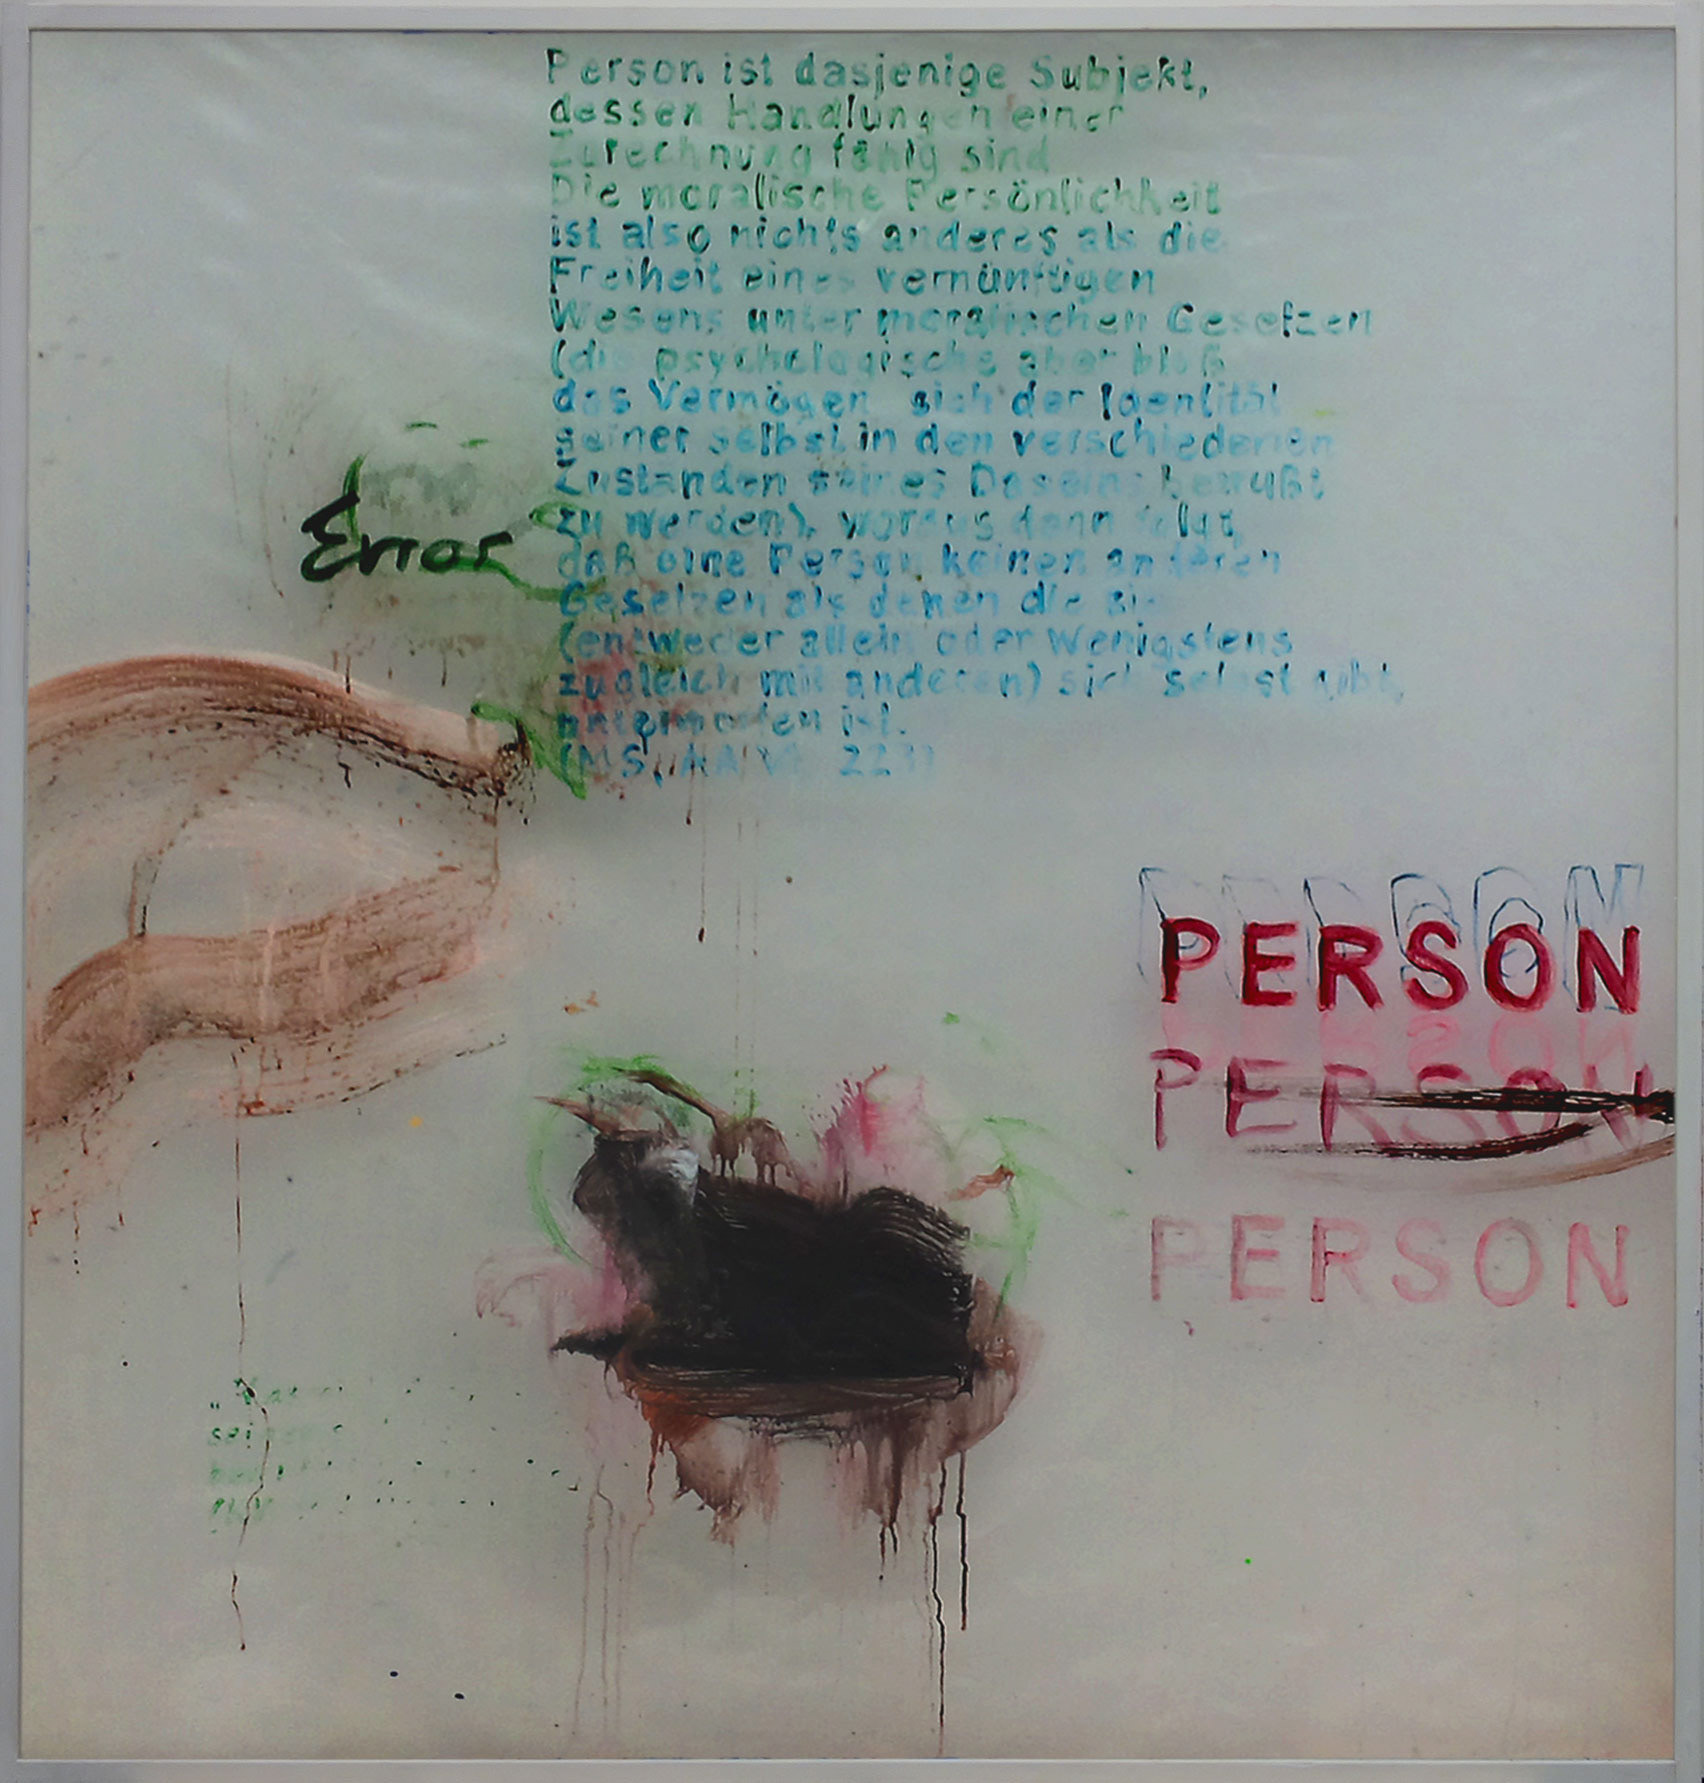 Person ist dasjenige Subjekt,
dessen Handlungen einer
Zurechnung fähig sind
Die moralische Persönlichkeit
ist also nichts anderes als die
Freiheit eines vernünftigen
Wesens unter moralischen Gesetzen
(die psychologische aber bloß
das Vermögen sich der Identität
seiner selbst in den verschiedenen
Zuständen seines Daseins bewußt
zu werden), woraus dann folgt,
daß eine Person keinen anderen
Gesetzen als denen die sie
(entweder allein oder wenigstens
zugleich mit anderen) sich selbst gibt,
unterworfen ist.
(MS, AA VI 223)
Error
PERSON
PERSON
PERSON
PERSON
PERSON